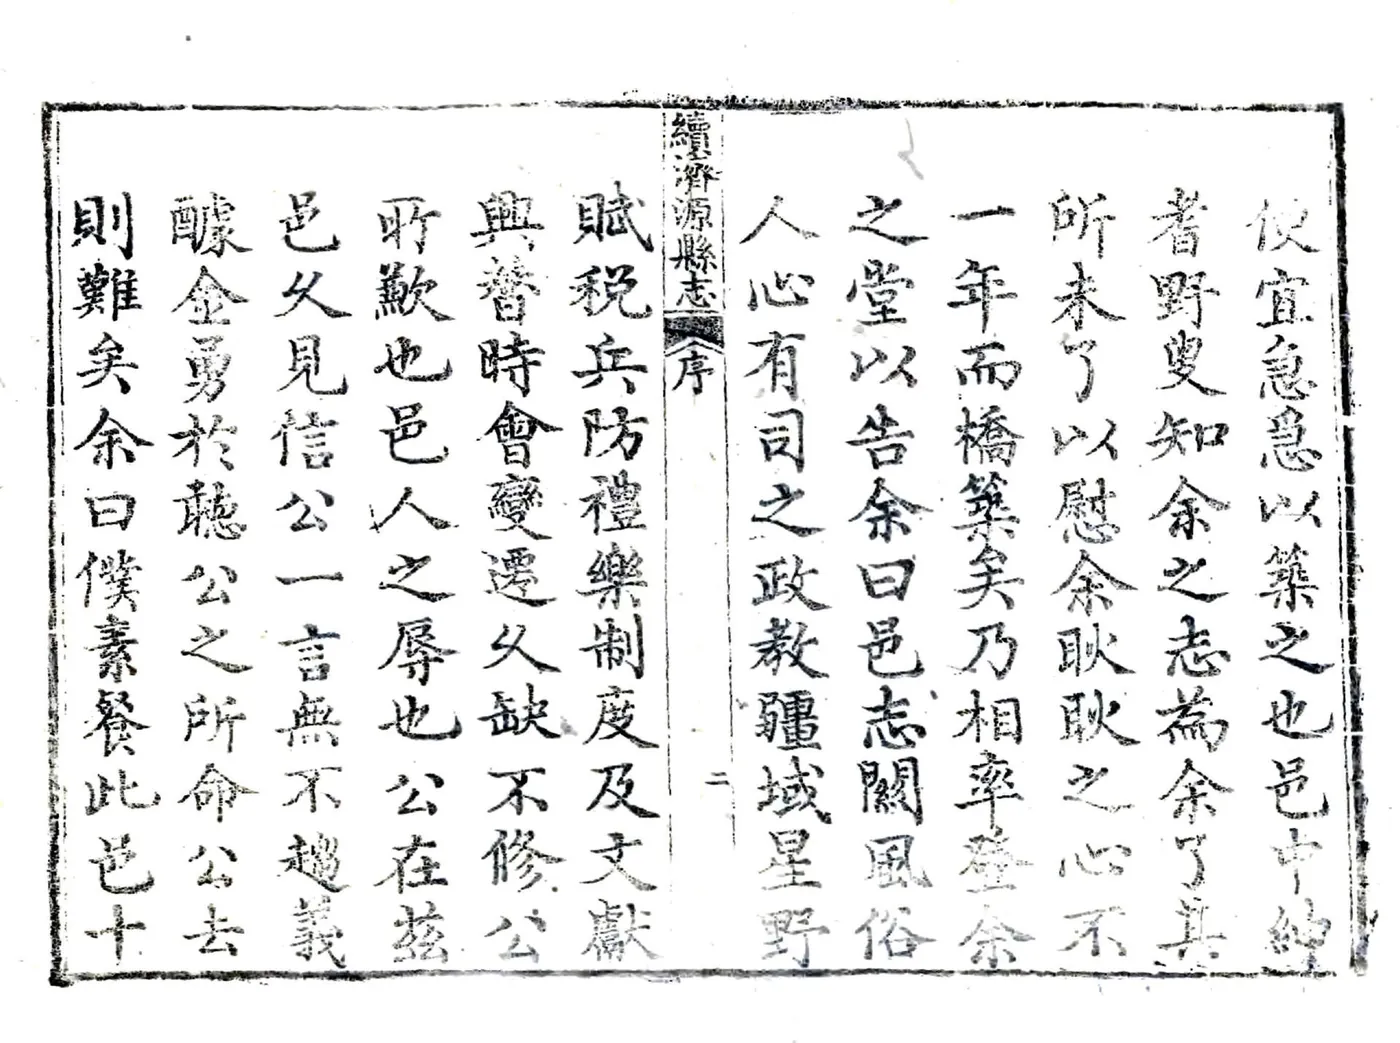 便宜急急爲以築之也邑中紳
耆野叟知余之志為余了其
所未了以慰余耿耿之心不
一年而橋築矣乃相率登余
之堂以告余曰邑志闗風俗
人心有司之政教疆域星野
續濟源縣志
序
二
賦税兵防禮樂制度及文獻
興替時會變遷久缺不修公
所歉也邑人之辱也公在兹
邑久見信公一言無不趨義
醵金勇於聽公之所命公去
則難矣余曰僕素餐此邑十